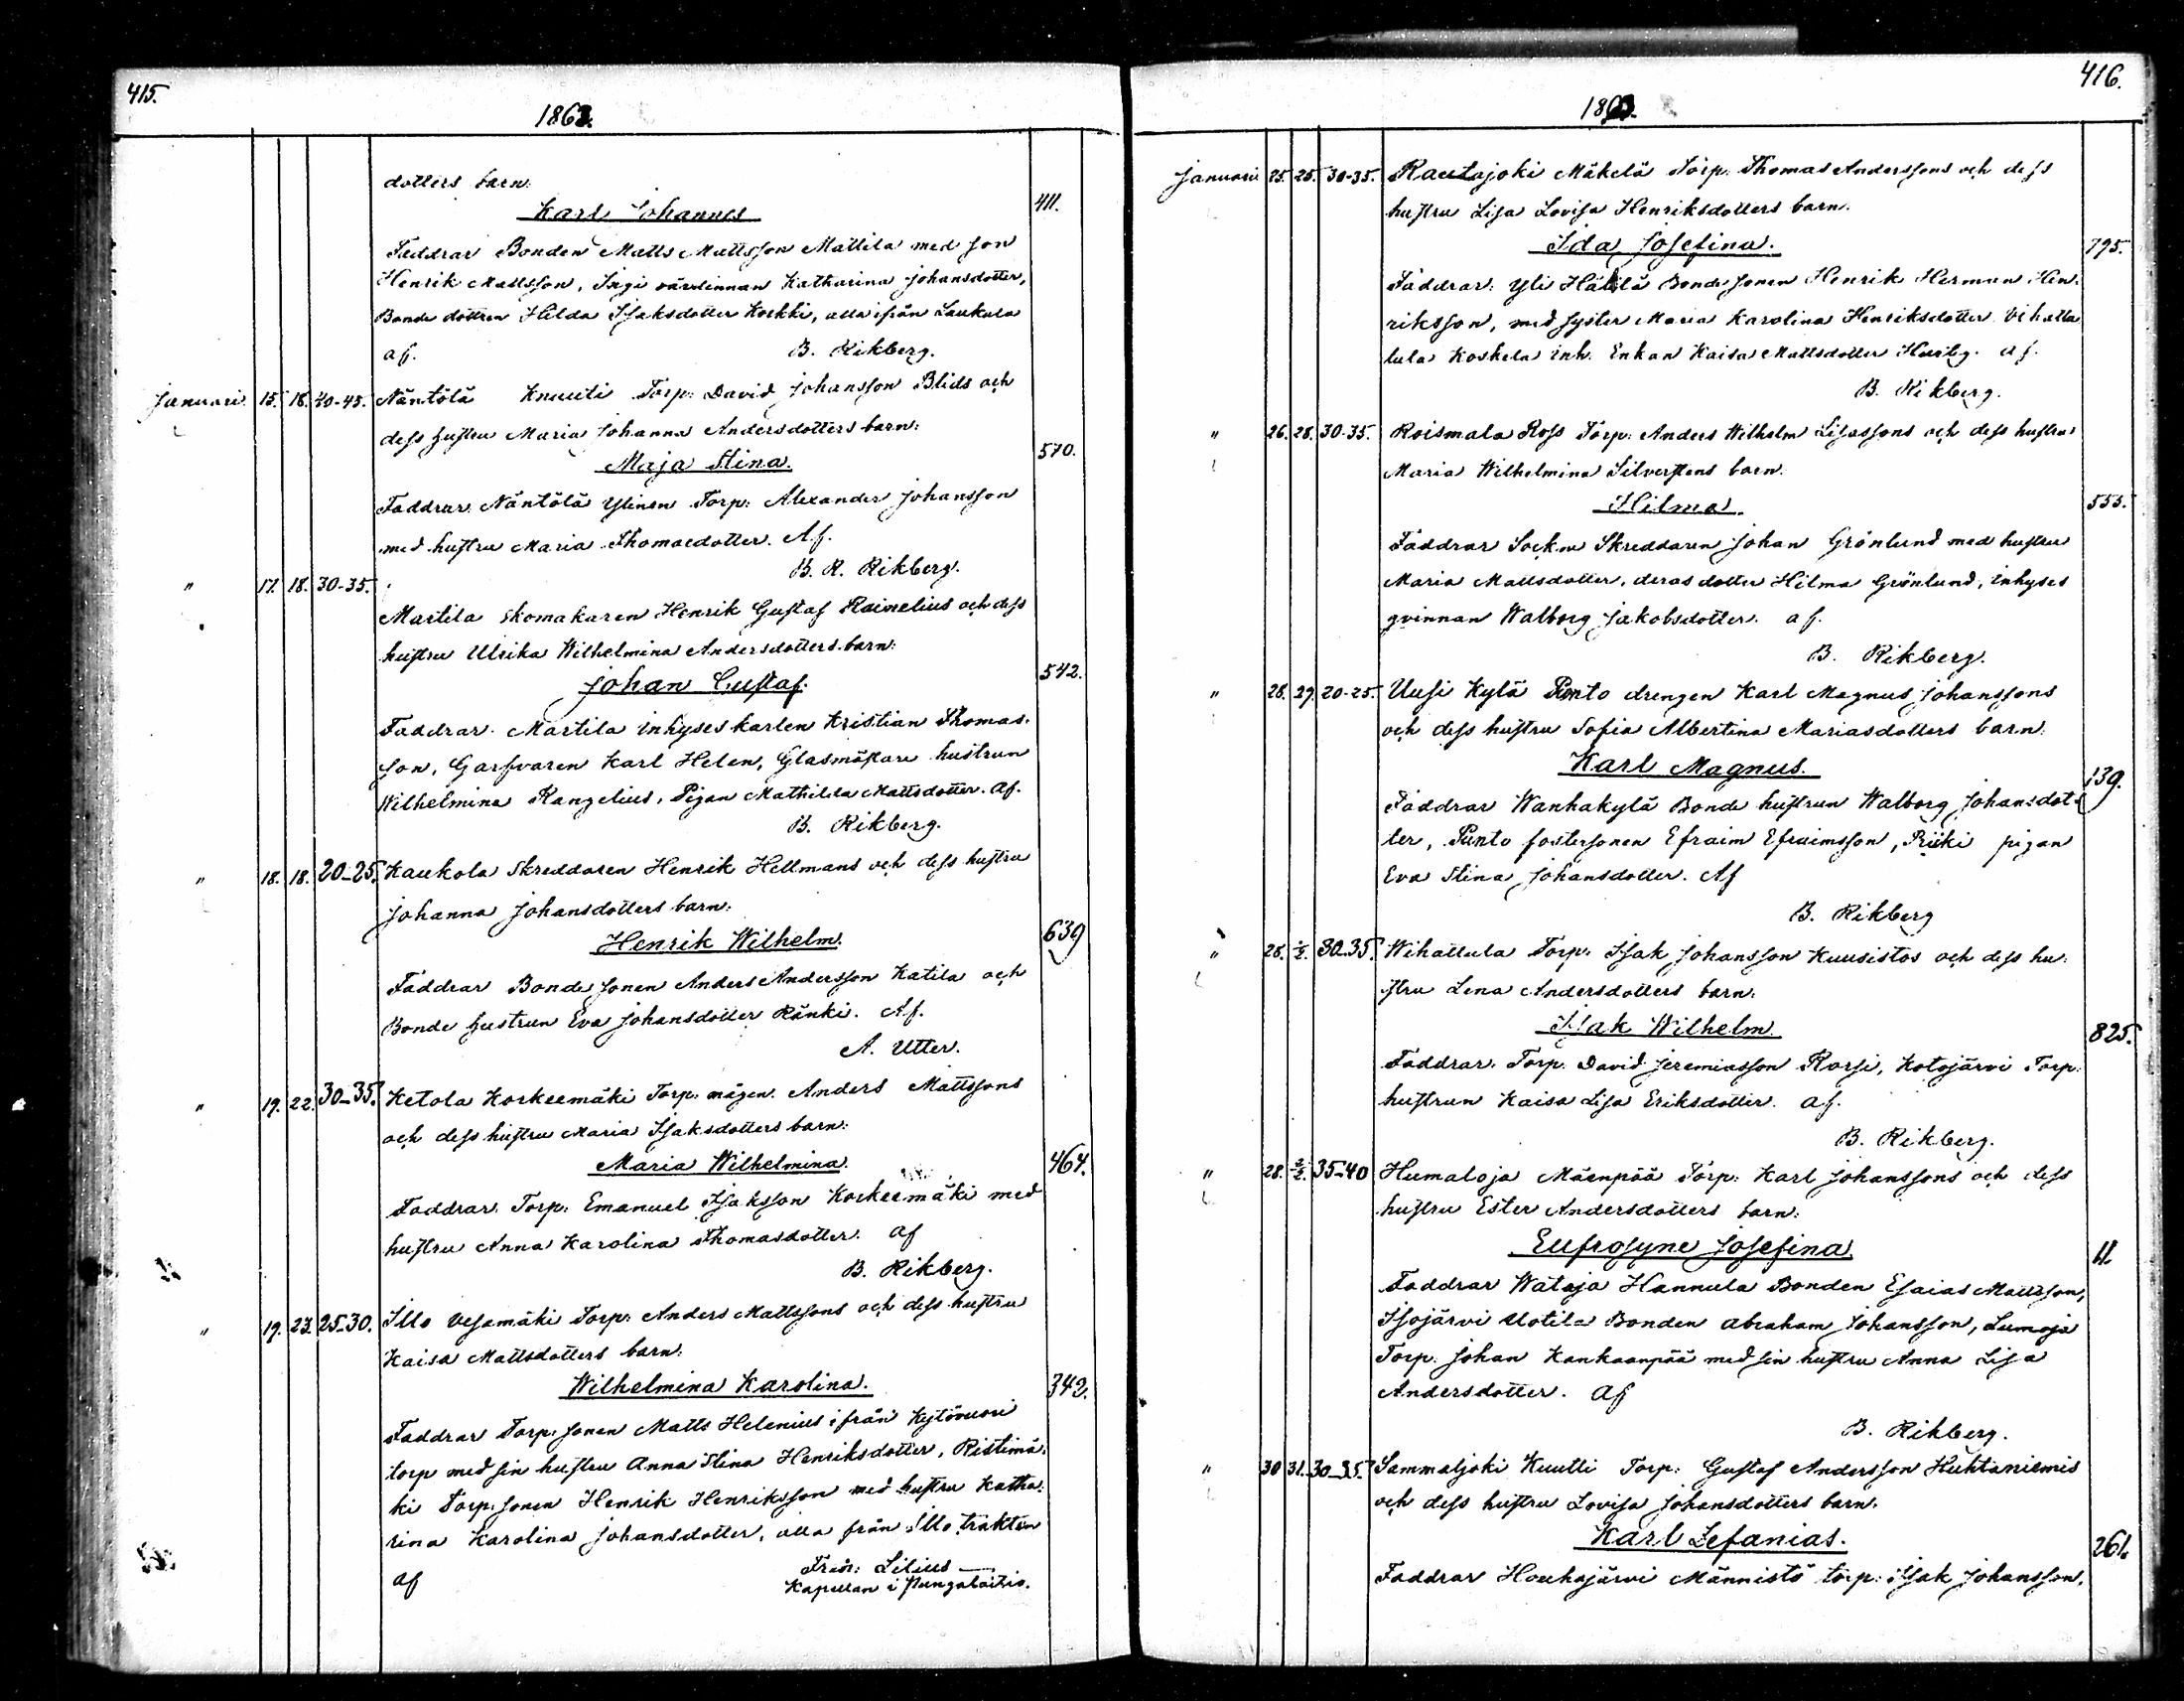 415.
1863.
dotters barn:
Karl Johannes
411.
Faddrar Bonden Matts Mattsson Mattila med son
Henrik Mattsson, Ingi värdinnan Katharina Johansdotter,
Bonde dottren Hilda Isaksdotter Korkki, alla ifrån Laukula
af. B. Rikberg.
Januari 15. 18. 40-45. Näntölä Knuuti Torp: David Johansson Blids och
dess hustru Maria Johanna Andersdotters barn:
Maja Stina.
570.
Faddrar. Näntölä Ylinen Torp: Alexander Johansson
med hustru Maria Thomasdotter. Af.
B. R. Rikberg.
" 17. 18. 30-35.
Martila Skomakaren Henrik Gustaf Rainelius och dess
hustru Ulrika Wilhelmina Andersdotters barn:
Johan Gustaf.
542.
Faddrar. Martila inhyses karlen Kristian Thomas-
son, Garfvaren Karl Helen, Glasmästare hustrun
Wilhelmina Rangelius, Pigan Mathilda Mattsdotter. Af.
B. Rikberg.
" 18. 18. 20-25. Kaukola Skreddaren Henrik Hellmans och dess hustru
Johanna Johansdotters barn:
Henrik Wilhelm.
639
Faddrar Bonde sonen Anders Andersson Katila och
Bonde hustrun Eva Johansdotter Ränki. Af.
A. Utter.
" 19. 22. 30-35. Ketola Korkeemäki Torp: mågen Anders Mattssons
och dess hustru Maria Isaksdotters barn:
Maria Wilhelmina.
464.
Faddrar. Torp: Emanuel Isaksson Korkeemäki med
hustru Anna Karolina Thomasdotter. Af
B. Rikberg.
" 19. 23. 25-30. Illo Vesamäki Torp: Anders Mattssons och dess hustru
Kaisa Mattsdotters barn:
Wilhelmina Karolina.
342.
Faddrar Torp: sonen Matts Helenius ifrån Kytövuori
torp med sin hustru Anna Stina Henriksdotter, Ristimä-
ki Torp: sonen Henrik Henriksson med hustru Katha-
rina Karolina Johansdotter, alla från Illo trakten
af Lilius
Kapellan i Pungalaitio.
416.
1863.
Januari 25. 25. 30-35. Rautajoki Mäkelä Torp: Thomas Anderssons och dess
hustru Lisa Lovisa Henriksdotters barn.
Ida Josefina.
795.
Faddrar: Yli Bonde sonen Henrik Herman Hen-
riksson, med syster Maria Karolina Henriksdotter Vihatta
lula Koskela inh. Enkan Kaisa Mattsdotter af.
B. Rikberg.
" 26. 28. 30-35. Roismala Ross Torp: Anders Wilhelm Lisassons och dess hustru
Maria Wilhelmina Silverstens barn.
Hilma.
553.
Faddrar Sockne Skreddaren Johan Grönlund med hustru
Maria Mattsdotter, deras dotter Hilma Grönlund, inhyses
qvinnan Walborg Jakobsdotter. af.
B. Rikberg.
" 28. 29. 20-25. Uusi Kylä Punto drengen Karl Magnus Johanssons
och dess hustru Sofia Albertina Mariasdotters barn:
Karl Magnus.
139.
Faddrar Wanhakylä Bonde hustrun Walborg Johansdot-
ter, Punto fostersonen Efraim Efraimsson, Priiki pigan
Eva Stina Johansdotter. Af
B. Rikberg
" 28. 1/2. 30-35. Wihattula Torp: Isak Johansson Kuusistos och dess hu-
stru Lena Andersdotters barn:
Isak Wilhelm.
825.
Faddrar. Torp. David Jeremiasson Rorsi, Kotojärvi Torp:
hustrun Kaisa Lisa Eriksdotter. af.
B. Rikberg.
" 28. 2/2. 35-40 Humaloja Mäenpää Torp: Karl Johanssons och dess
hustru Ester Andersdotters barn:
Eufrosyne Josefina
11.
Faddrar Wataja Hannula Bonden Esaias Mattsson,
Isojärvi Uotila Bonden Abraham Johansson, Lumoja
Torp: Johan Kankaanpää med sin hustru Anna Lisa
Andersdotter. Af
B. Rikberg.
" 30 31. 30-35. Sammaljoki Kuutti Torp: Gustaf Andersson Huhtaniemis
och dess hustru Lovisa Johansdotters barn.
Karl Zefanias.
261.
Faddrar Houhajärvi Männistö torp: Isak Johansson,